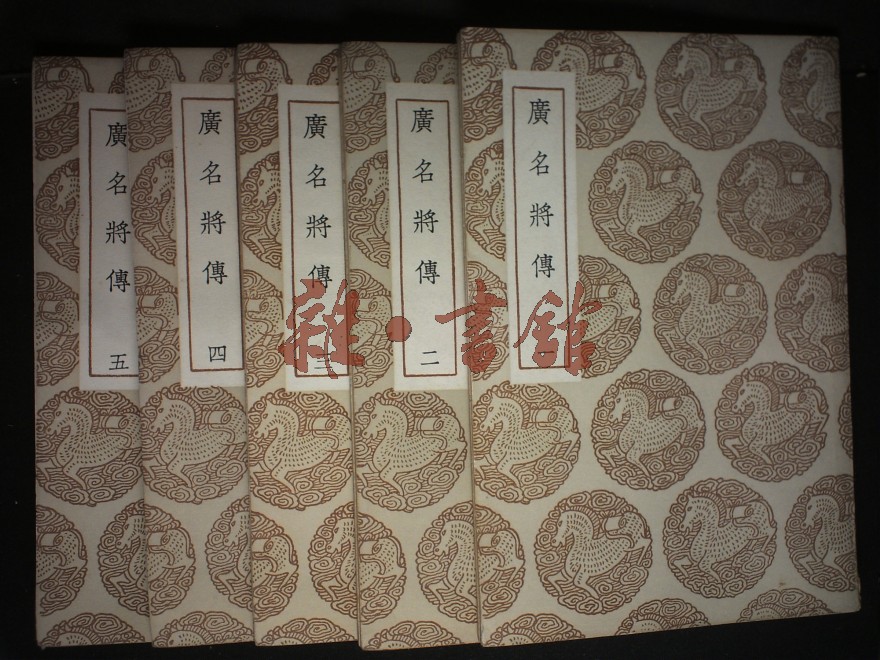 廣名將傳 一
廣名將傳 二
廣名將傳 三
廣名將傳 四
廣名將傳 五
雜·書館